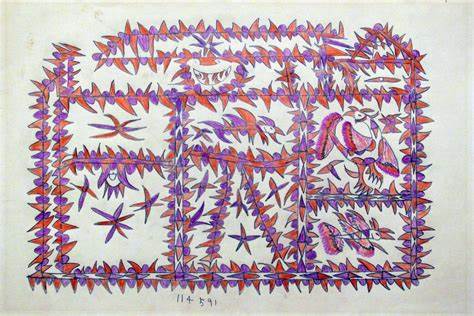 114 591